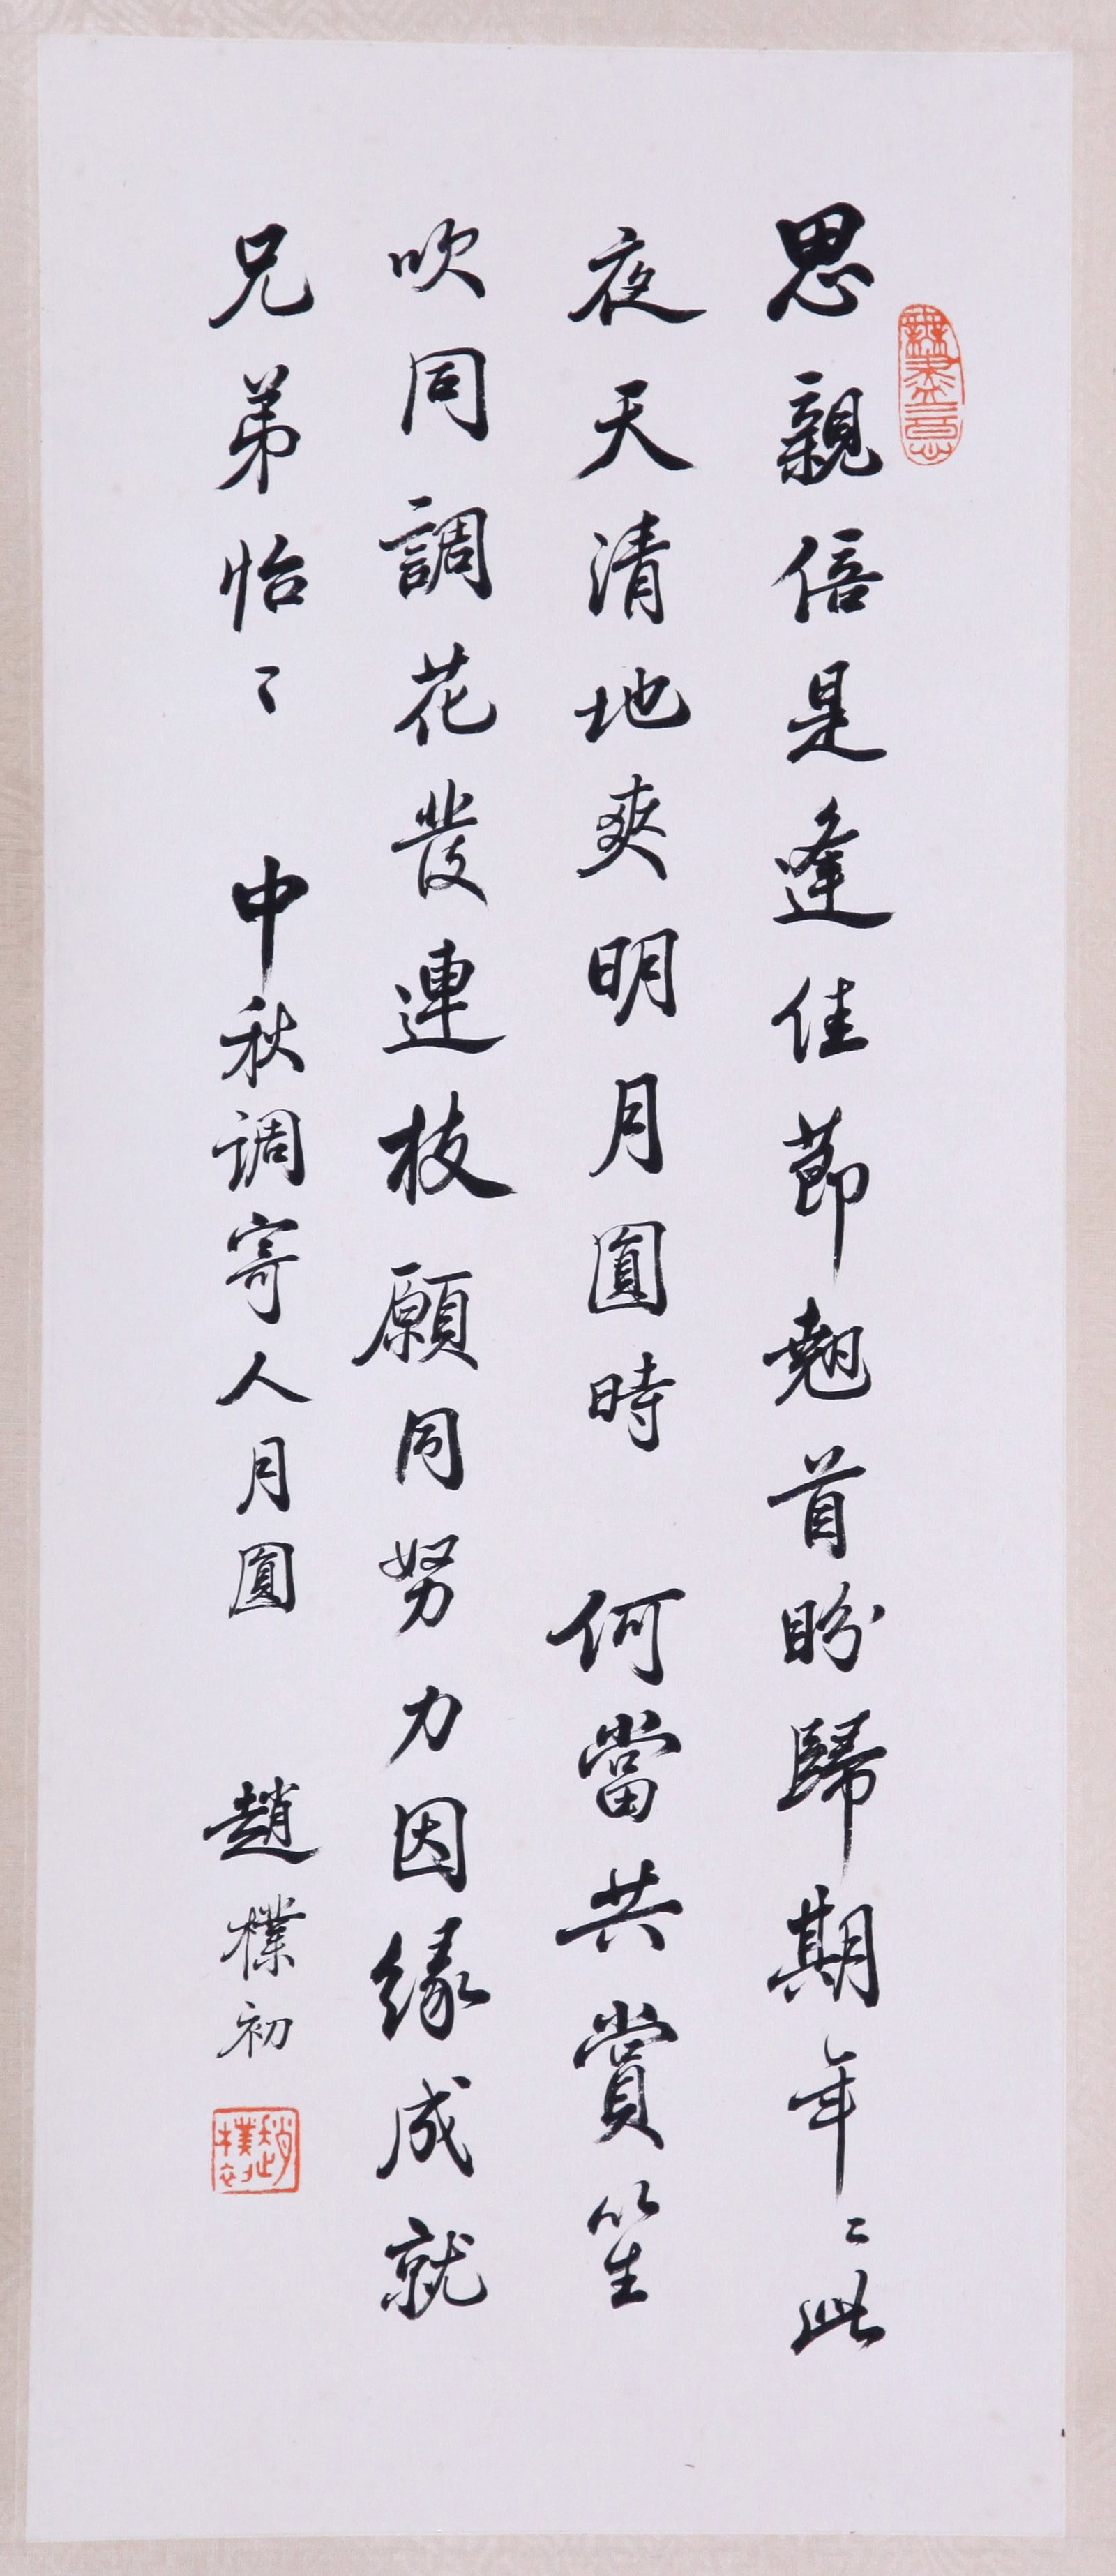 思親倍是逢佳節翹首盼歸期年〻此
夜天清地爽明月圓時 何當共賞笙
吹同調花發連枝願同努力因緣成就
兄弟怡〻 中秋调寄人月圓 趙樸初
無盡意
趙樸初